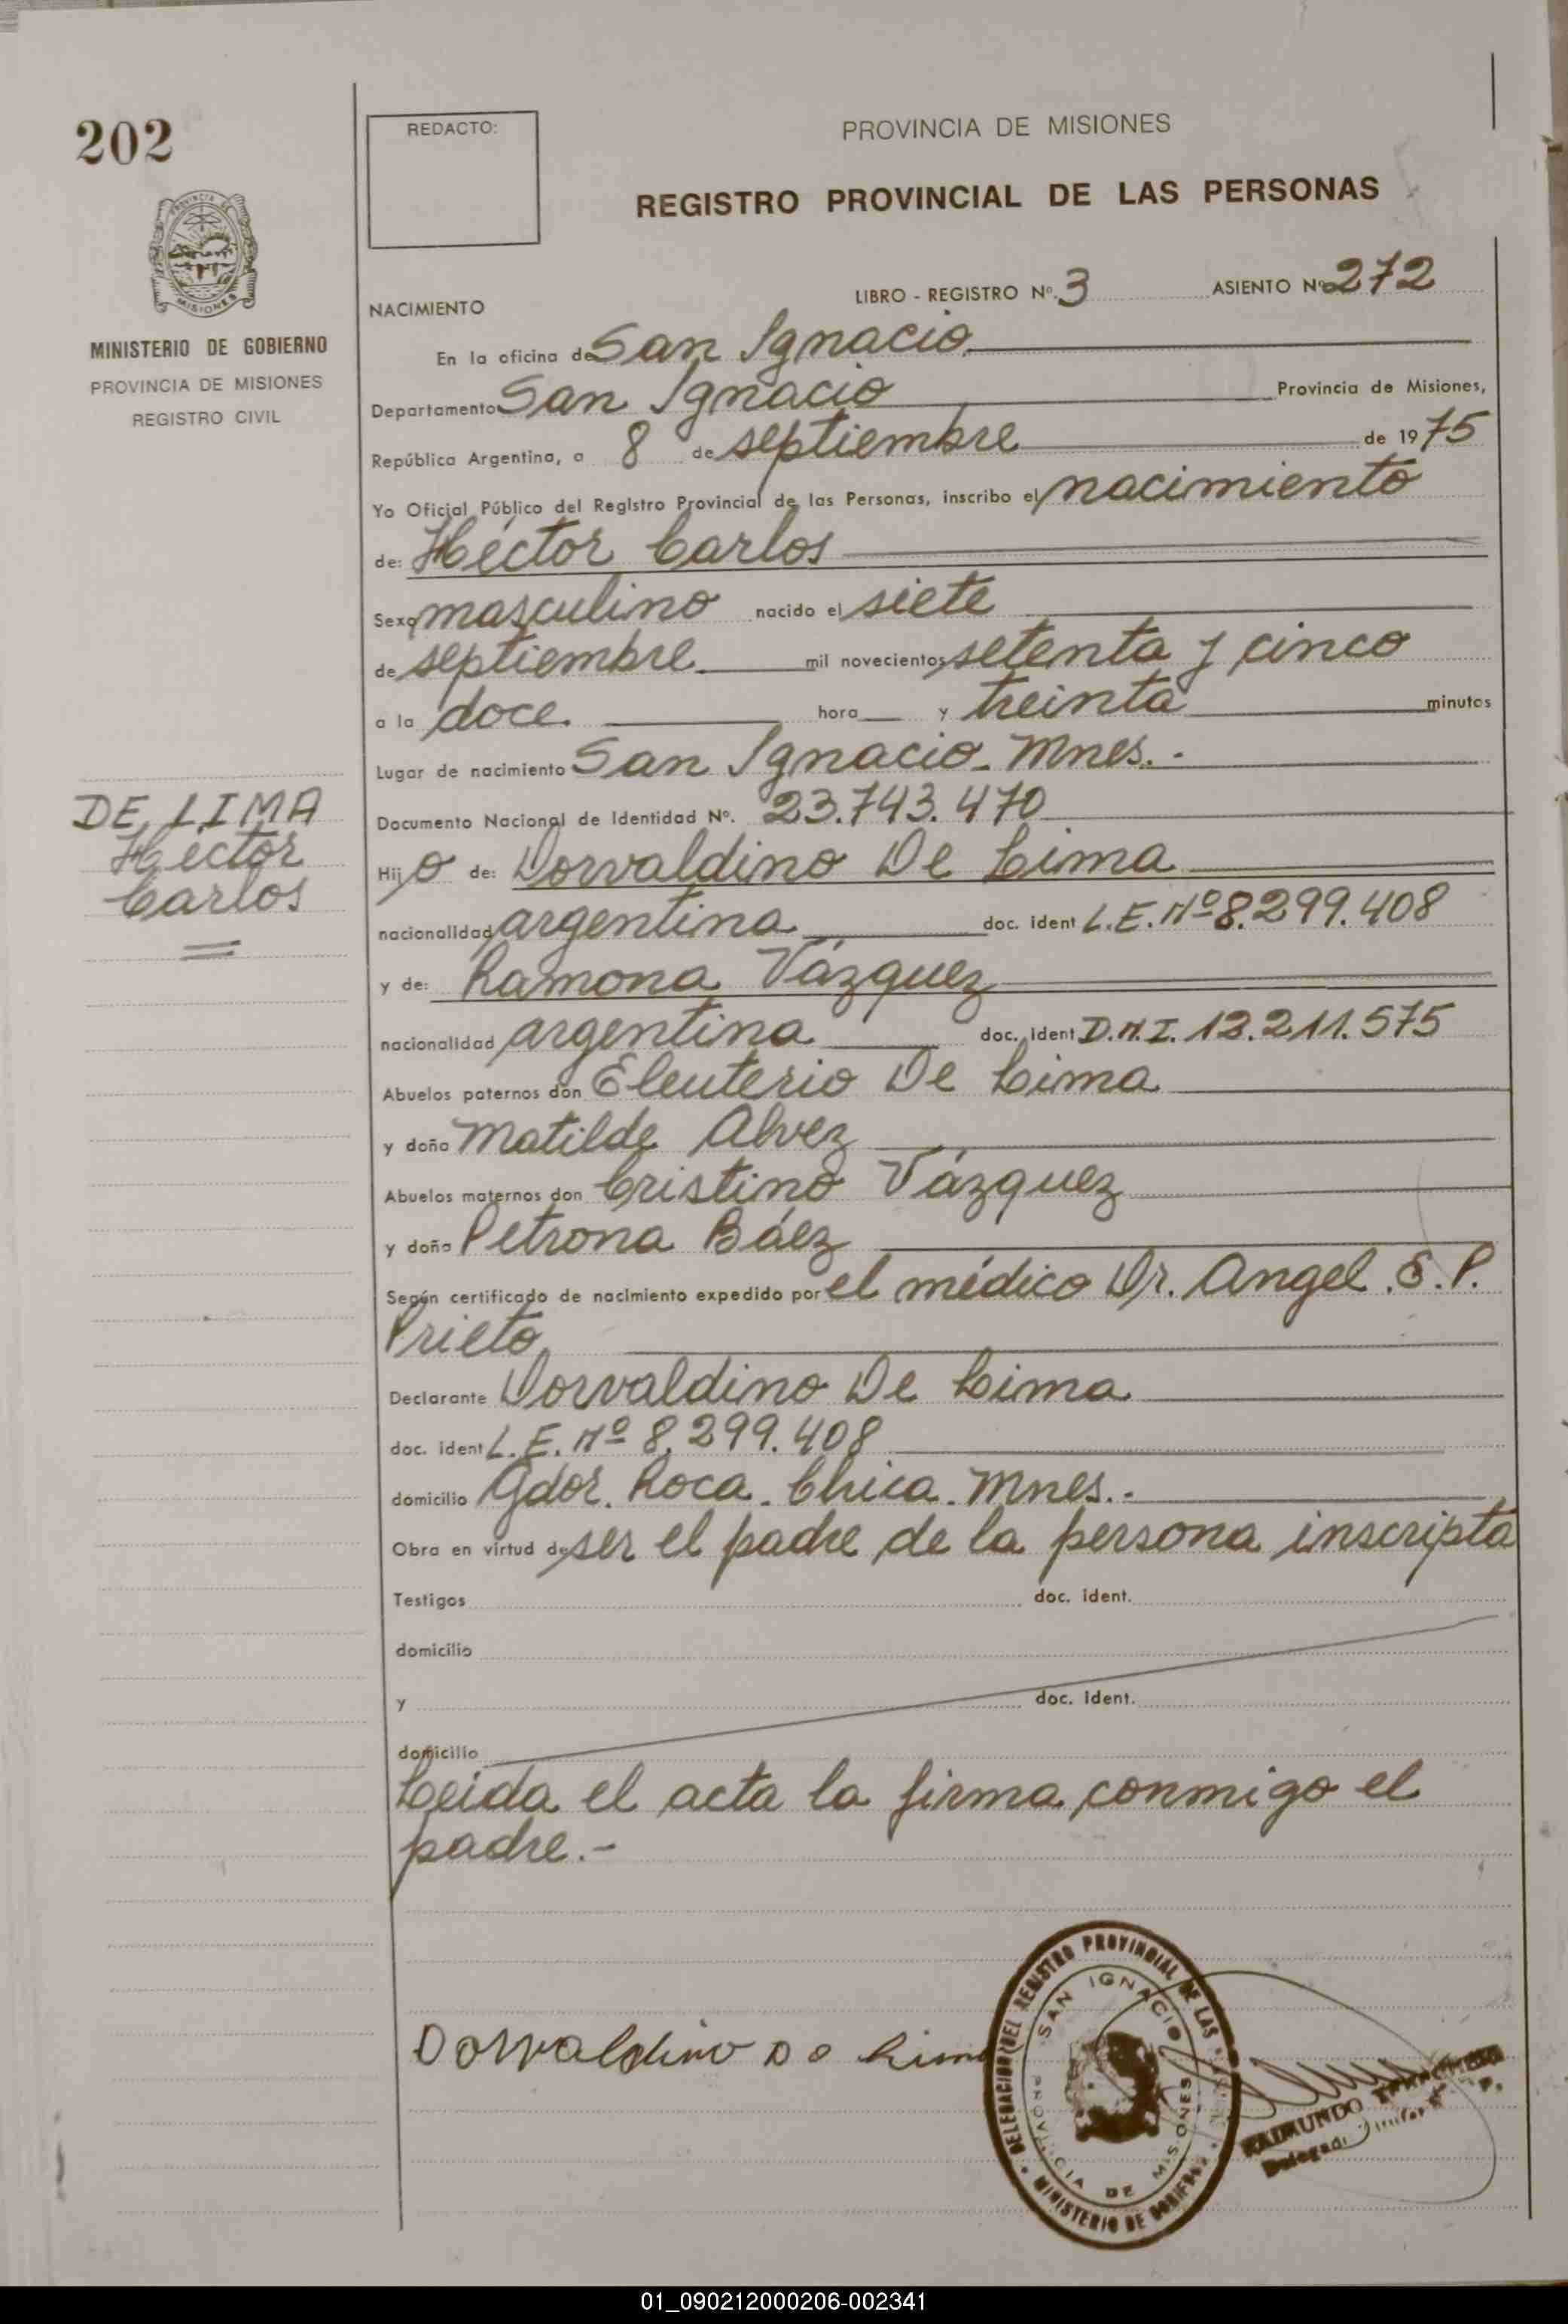 202
REDACTO:
PROVINCIA DE MISIONES
REGISTRO PROVINCIAL DE LAS PERSONAS
PROVINCIA DE
MISIONES
MINISTERIO DE GOBIERNO
PROVINCIA DE MISIONES
REGISTRO CIVIL
NACIMIENTO LIBRO - REGISTRO Nº. 3 ASIENTO Nº 272
En la oficina de San Ignacio
Departamento San Ignacio Provincia de Misiones,
República Argentina, a 8 de septiembre de 1975
Yo Oficial Público del Registro Provincial de las Personas, inscribo el nacimiento
de: Héctor Carlos
Sexo masculino nacido el siete
de septiembre mil novecientos setenta y cinco
a la doce. hora y treinta minutos
Lugar de nacimiento San Ignacio - Mnes. -
Documento Nacional de Identidad Nº. 23.743.470
DE LIMA
Héctor
Carlos
Hijo de: Dorvaldino De Lima
nacionalidad argentina doc. ident L.E. Nº 8.299.408
y de: Ramona Vázquez
nacionalidad argentina doc. ident D.N.I. 12.211.575
Abuelos paternos don Eleuterio De Lima
y doña Matilde Alvez
Abuelos maternos don Cristino Vázquez
y doña Petrona Báez
Según certificado de nacimiento expedido por el médico Dr. Angel E. P.
Prieto
Declarante Dorvaldino De Lima
doc. ident L.E. Nº 8.299.408
domicilio Gdor. Roca. Chica. Mnes. -
Obra en virtud de ser el padre de la persona inscripta
Testigos doc. ident.
domicilio
y doc. ident.
domicilio
Leida el acta la firma conmigo el
padre. -
Dorvaldino De Lima
DELEGACION DEL REGISTRO PROVINCIAL DE LAS
MINISTERIO DE
SAN IGNACIO
PROVINCIA DE MISIONES
RAIMUNDO
01_090212000206-002341